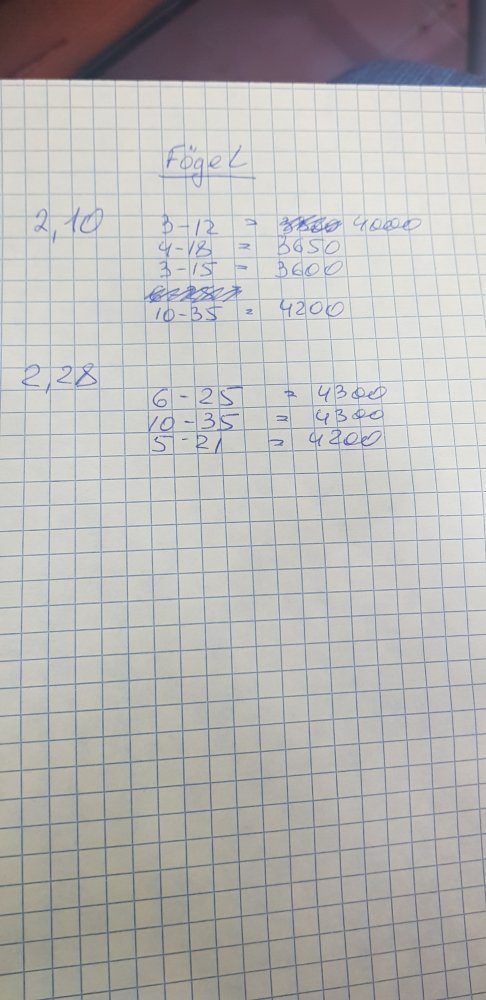 Fögel
2,10 3-12 = 4000
4-18 = 3650
3-15 = 3600
10-35 = 4200
2,28
6-25 = 4300
10-35 = 4300
5-21 = 4200